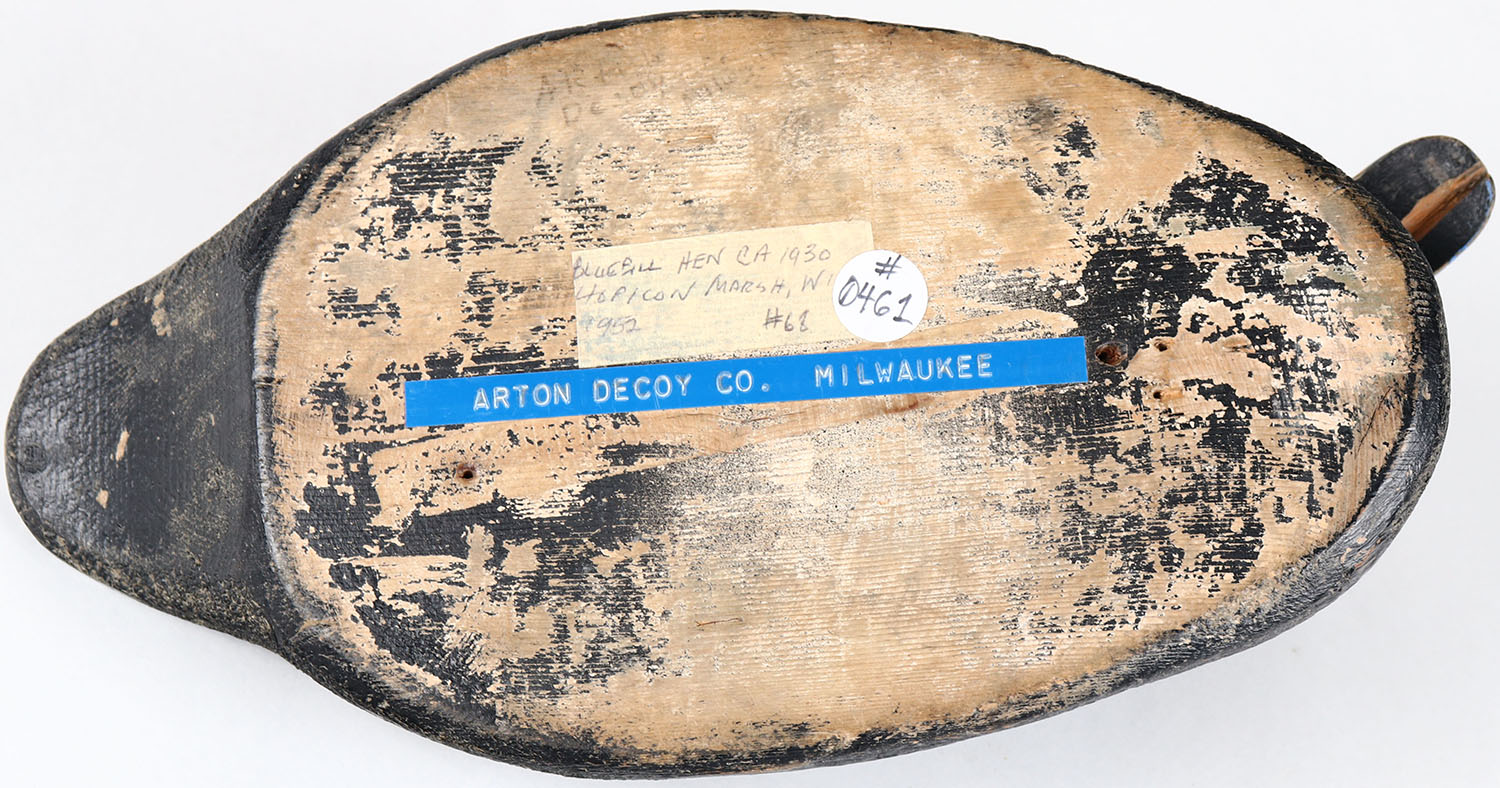 BLUEBILL HEN CA 1930
HORICON MARSH, WI
#68
#
0461
ARTON DECOY CO. MILWAUKEE